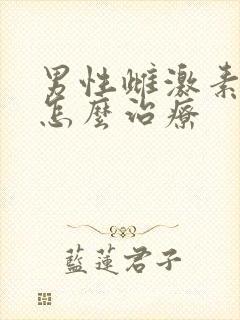 男性雌激素
怎麼治療
藍蓮君子